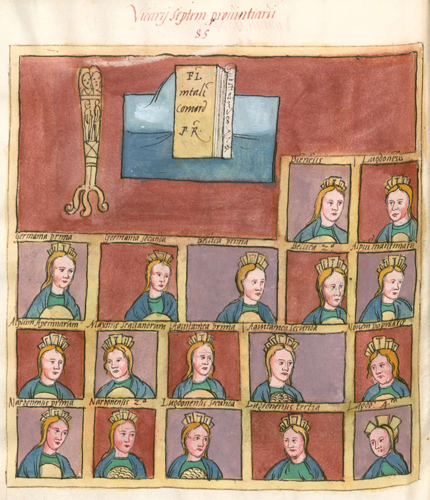 Vicarij septem provintiarũ
85
FL
intali
comord
P R
Vienẽsis Lugdonẽs
Germania prima Germania secunda Belgica prima Belgica 2.ª Alpiũ maritimarũ
Alpium apeninarum Maxima sequanorum Aquitanica prima Aquitanica secunda Novem populare
Narbonensis prima Narbonensis 2.ª Lugdonensis secunda Lugdonensis tertia